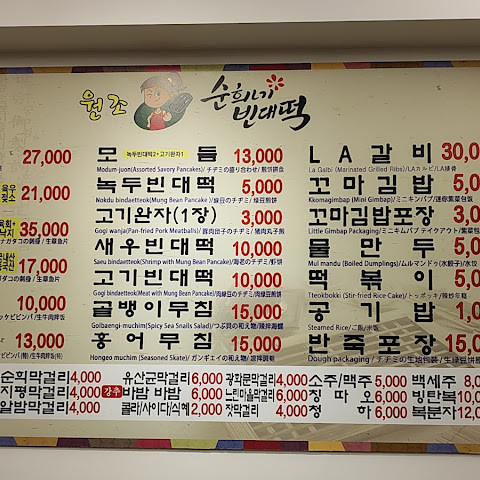 원조
순희네
빈대떡
27,000
21,000
35,000
17,000
10,000
13,000
모듬 녹두빈대떡2+고기완자1 13,000
Modum-juon(Assorted Savory Pancakes)/チヂミの盛り合わせ/煎饼拼盘
녹두빈대떡 5,000
Nokdu bindaetteok(Mung Bean Pancake)/緑豆のチヂミ/绿豆煎饼
고기완자(1장) 3,000
Gogi wanja(Pan-fried Pork Meatballs)/
새우빈대떡 10,000
Saeu bindaetteok(Shrimp with Mung Bean Pancake)/海老のチヂミ/虾饼
고기빈대떡 10,000
Gogi bindaetteok(Meat with Mung Bean Pancake)/肉緑豆のチヂミ/肉绿豆煎饼
골뱅이무침 15,000
Golbaengi-muchim(Spicy Sea Snails Salad)/つぶ貝の和え物/辣拌海螺
홍어무침 15,000
Hongeo muchim (Seasoned Skate)/ガンギエイの和え物/
LA갈비 30,0
La Galbi (Marinated Grilled Ribs)/LAカルビ/LA排骨
꼬마김밥 3,00
Kkomagimbap (Mini Gimbap)/ミニキムパプ/迷你紫菜包饭
꼬마김밥포장 3,00
Little Gimbap Packaging/ミニキムパプ テイクアウト/
물만두 5,0
Mul mandu (Boiled Dumplings)/ムルマンドゥ(水餃子)/水饺
떡볶이 5,0
Tteokbokki (Stir-fried Rice-Cake)/トッポッキ/辣炒年糕
공기밥 1,0
Steamed Rice/ご飯/米饭
반죽포장 15,0
Dough packaging/チヂミの生地包装/生绿豆饼
순희막걸리 4,000 유산균막걸리 6,000 광화문막걸리 4,000 소주/맥주 5,000 백세주 8,0
지평막걸리 4,000 강추 바밤바밤 6,000 느린마을막걸리 6,000 칭따오 6,000 빙탄복 10,0
알밤막걸리 4,000 콜라/사이다/식혜 2,000 잣막걸리 4,000 청하 6,000 복분자 12,0